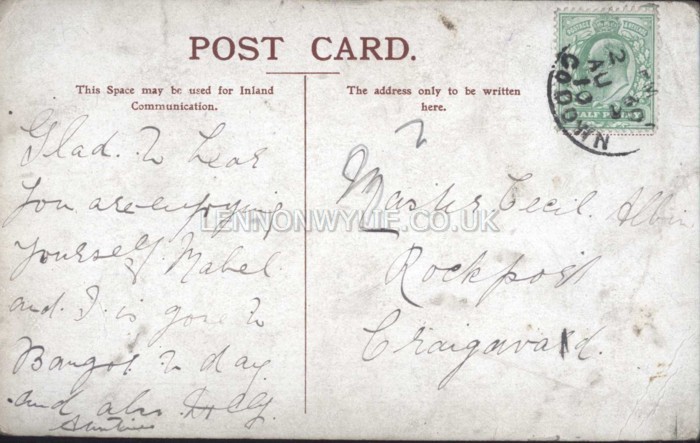 POST CARD.
This Space may be used for Inland
Communication.
The address only to be written
here.
Glad. to hear
you are enjoying
yourself. Mabel
and. I. is gone to
Bangor to day
and also
Aunties
Master Cecil. Albin
Rockport
Craigavad.
LENNONWYLIE.CO.UK
HALF PENNY
AU 2
10